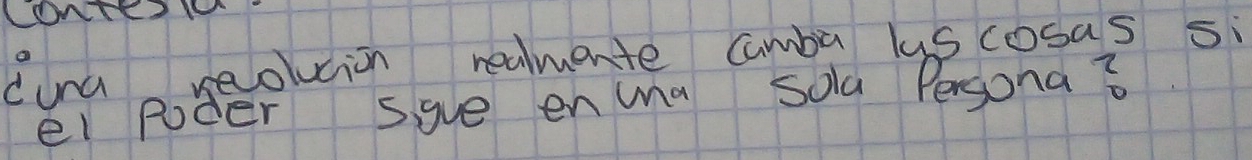 Contesta.
¿una revolución realmente camba las cosas si
el Poder sigue en una sola Persona?